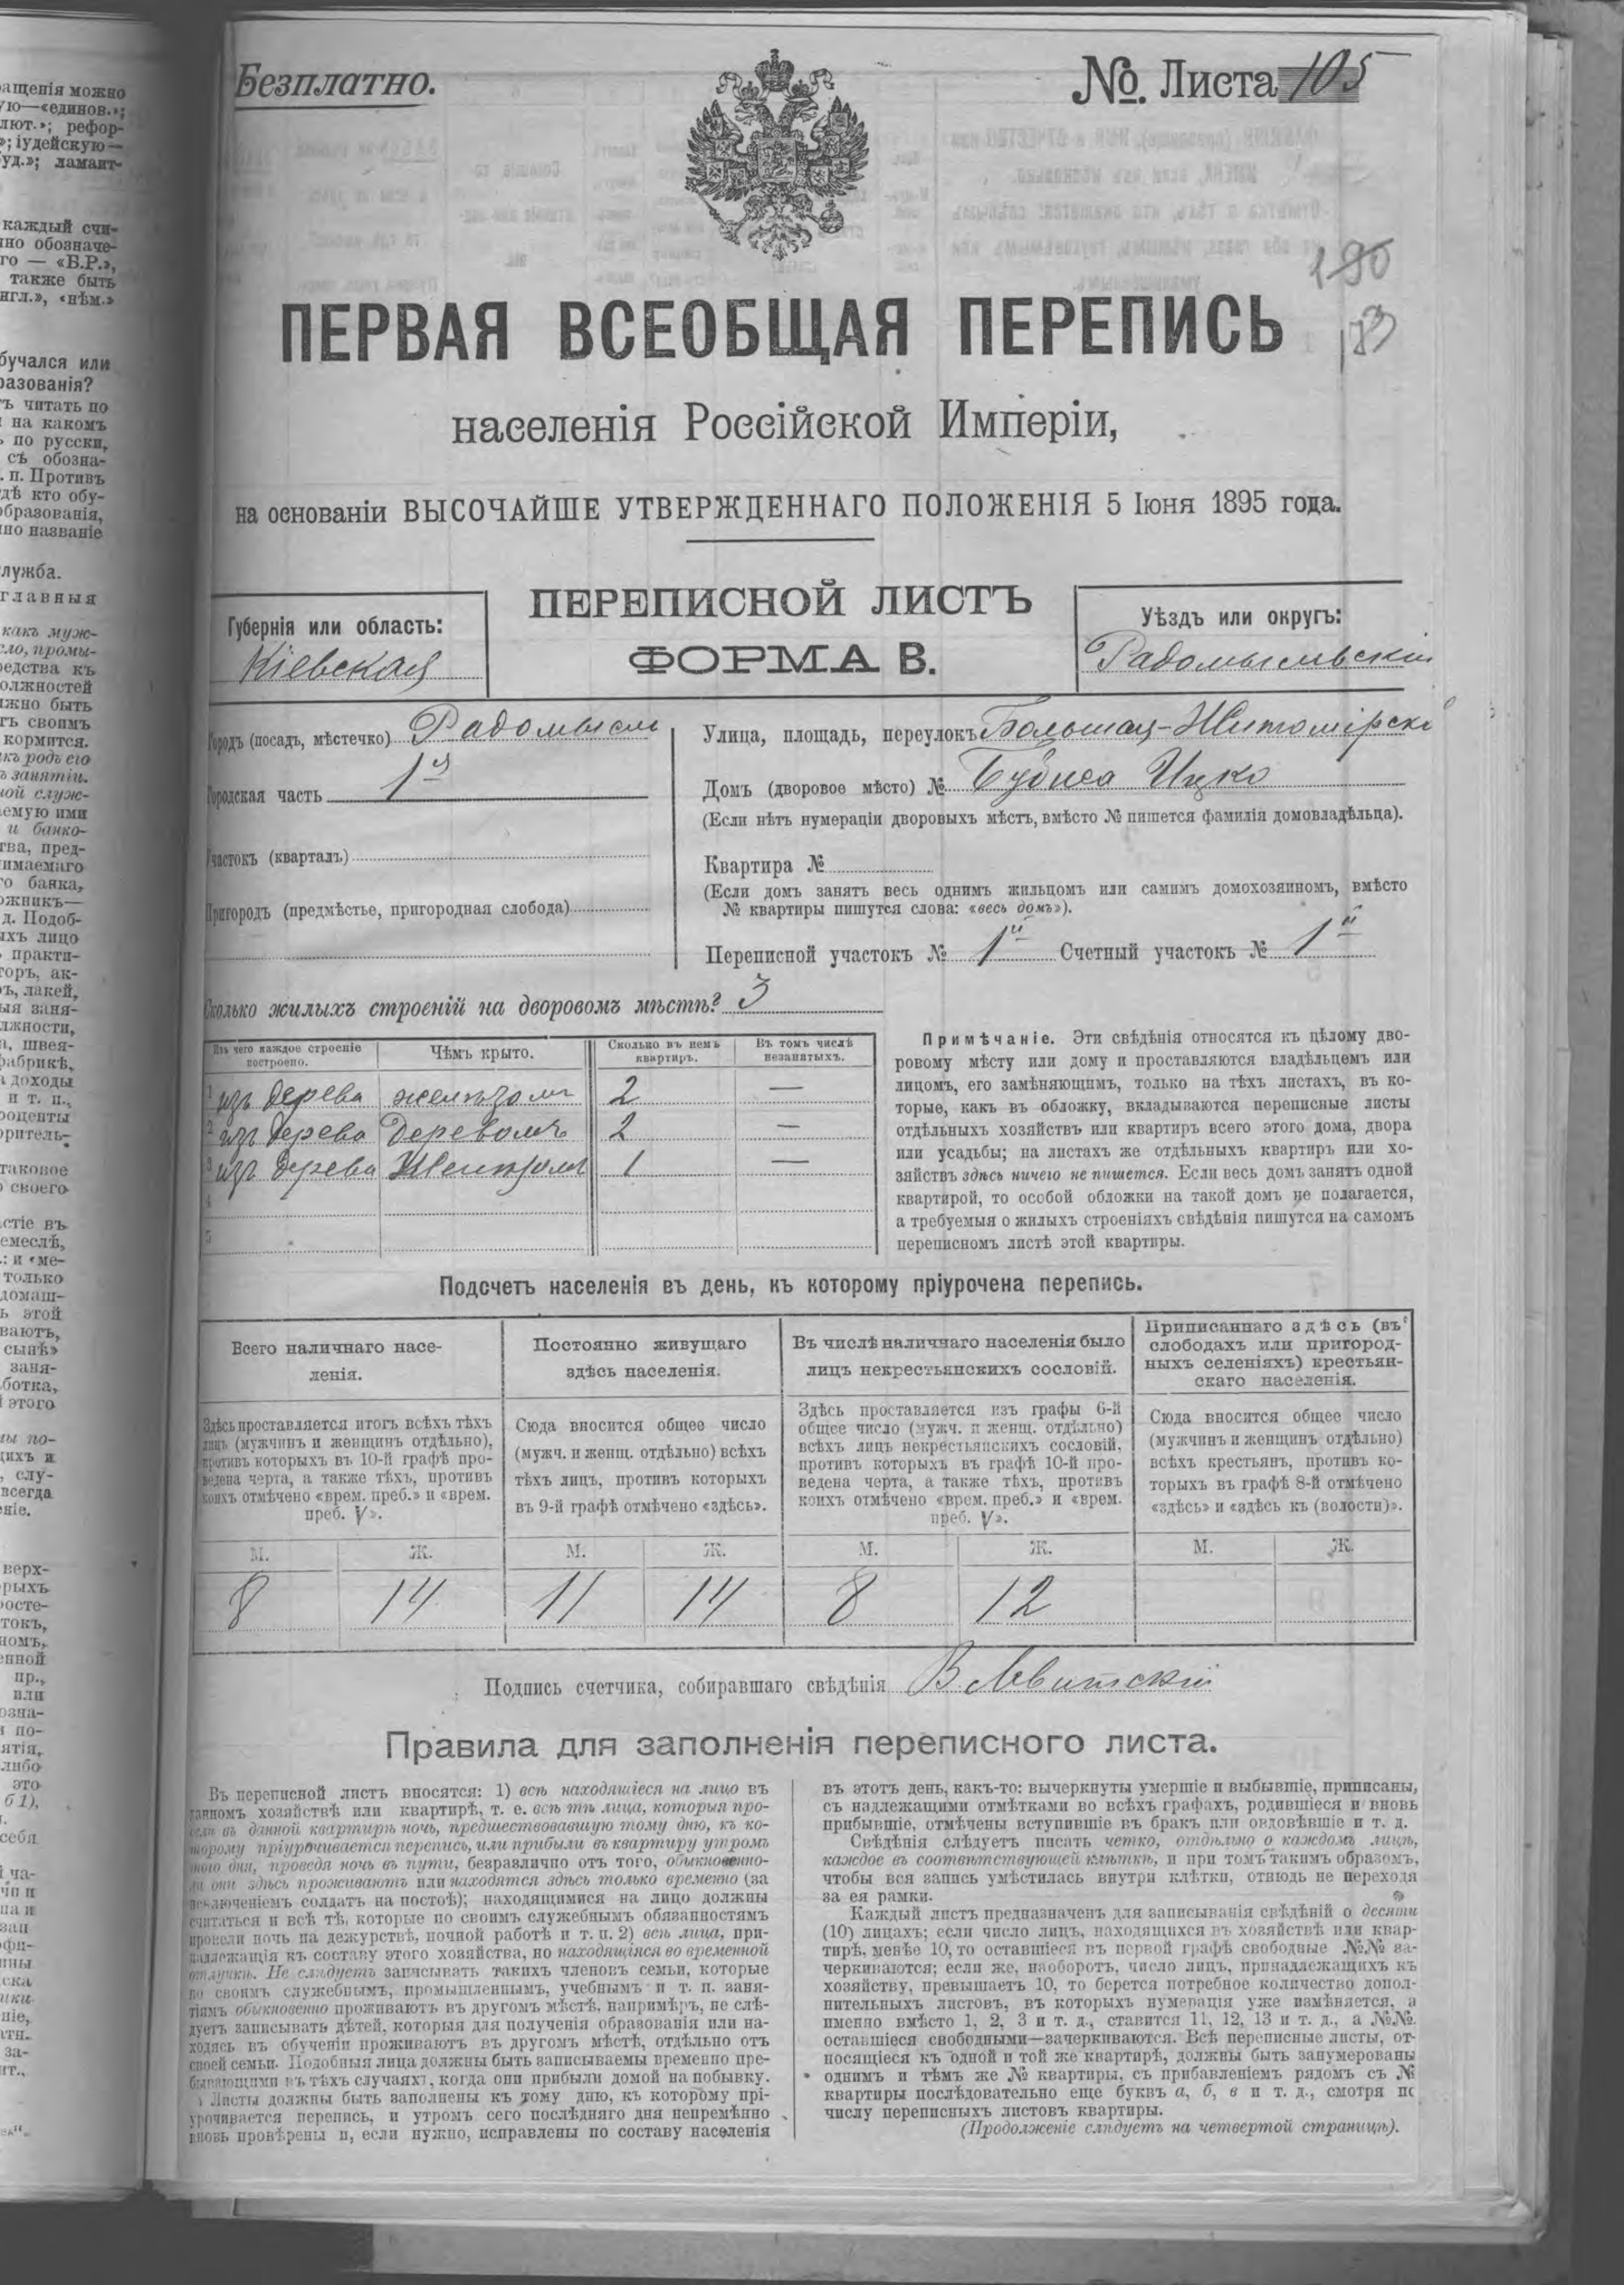 Безплатно.
№. Листа 105
190
183
ПЕРВАЯ ВСЕОБЩАЯ ПЕРЕПИСЬ
населенія Россійской Имперіи,
на основаніи ВЫСОЧАЙШЕ УТВЕРЖДЕННАГО ПОЛОЖЕНІЯ 5 Іюня 1895 года.
ПЕРЕПИСНОЙ ЛИСТЪ
ФОРМА В.
Губернія или область:
Кіевская
Уѣздъ или округъ:
Радомысльскій
Городъ (посадъ, мѣстечко) Радомысль
Городская часть 1я
Участокъ (кварталъ)
Пригородъ (предмѣстье, пригородная слобода)
Улица, площадь, переулокъ Большая-Житомірская
Домъ (дворовое мѣсто) № Ицко
(Если нѣтъ нумераціи дворовыхъ мѣстъ, вмѣсто № пишется фамилія домовладѣльца).
Квартира №
(Если домъ занятъ весь однимъ жильцомъ или самимъ домохозяиномъ, вмѣсто
№ квартиры пишутся слова: «весь домъ»).
Переписной участокъ № 1й Счетный участокъ № 1й
Сколько жилыхъ строеній на дворовомъ мѣстѣ? 3
Изъ чего каждое строеніе построено.
Чѣмъ крыто.
Сколько въ немъ квартиръ.
Въ томъ числѣ незанятыхъ.
1 изъ дерева желѣзомъ 2 —
2 изъ дерева деревомъ 2 —
3 изъ дерева 1 —
4
5
Примѣчаніе. Эти свѣдѣнія относятся къ цѣлому дво-
ровому мѣсту или дому и проставляются владѣльцемъ или
лицомъ, его замѣняющимъ, только на тѣхъ листахъ, въ ко-
торые, какъ въ обложку, вкладываются переписные листы
отдѣльныхъ хозяйствъ или квартиръ всего этого дома, двора
или усадьбы; на листахъ же отдѣльныхъ квартиръ или хо-
зяйствъ здѣсь ничего не пишется. Если весь домъ занятъ одной
квартирой, то особой обложки на такой домъ не полагается,
а требуемыя о жилыхъ строеніяхъ свѣдѣнія пишутся на самомъ
переписномъ листѣ этой квартиры.
Подсчетъ населенія въ день, къ которому пріурочена перепись.
Всего наличнаго насе-
ленія.
Постоянно живущаго
здѣсь населенія.
Въ числѣ наличнаго населенія было
лицъ некрестьянскихъ сословій.
Приписаннаго здѣсь (въ
слободахъ или пригород-
ныхъ селеніяхъ) крестьян-
скаго населенія.
Здѣсь проставляется итогъ всѣхъ тѣхъ
лицъ (мужчинъ и женщинъ отдѣльно),
противъ которыхъ въ 10-й графѣ про-
ведена черта, а также тѣхъ, противъ
коихъ отмѣчено «врем. преб.» и «врем.
преб. V».
Сюда вносится общее число
(мужч. и женщ. отдѣльно) всѣхъ
тѣхъ лицъ, противъ которыхъ
въ 9-й графѣ отмѣчено «здѣсь».
Здѣсь проставляется изъ графы 6-й
общее число (мужч. и женщ. отдѣльно)
всѣхъ лицъ некрестьянскихъ сословій,
противъ которыхъ въ графѣ 10-й про-
ведена черта, а также тѣхъ, противъ
коихъ отмѣчено «врем. преб.» и «врем.
преб. V».
Сюда вносится общее число
(мужчинъ и женщинъ отдѣльно)
всѣхъ крестьянъ, противъ ко-
торыхъ въ графѣ 8-й отмѣчено
«здѣсь» и «здѣсь къ (волости)».
М. Ж. М. Ж. М. Ж. М. Ж.
8 14 11 14 8 12
Подпись счетчика, собиравшаго свѣдѣнія В Левитскій
Правила для заполненія переписного листа.
Въ переписной листъ вносятся: 1) всѣ находящіеся на лицо въ
данномъ хозяйствѣ или квартирѣ, т. е. всѣ тѣ лица, которыя про-
вели въ данной квартирѣ ночь, предшествовавшую тому дню, къ ко-
торому пріурочивается перепись, или прибыли въ квартиру утромъ
того дня, проведя ночь въ пути, безразлично отъ того, обыкновенно-
ли они здѣсь проживаютъ или находятся здѣсь только временно (за
исключеніемъ солдатъ на постоѣ); находящимися на лицо должны
считаться и всѣ тѣ, которые по своимъ служебнымъ обязанностямъ
провели ночь на дежурствѣ, ночной работѣ и т. п. 2) всѣ лица, при-
надлежащія къ составу этого хозяйства, но находящіяся во временной
отлучкѣ. Не слѣдуетъ записывать такихъ членовъ семьи, которые
по своимъ служебнымъ, промышленнымъ, учебнымъ и т. п. заня-
тіямъ обыкновенно проживаютъ въ другомъ мѣстѣ, напримѣръ, не слѣ-
дуетъ записывать дѣтей, которыя для полученія образованія или на-
ходясь въ обученіи проживаютъ въ другомъ мѣстѣ, отдѣльно отъ
своей семьи. Подобныя лица должны быть записываемы временно пре-
бывающими въ тѣхъ случаяхъ, когда они прибыли домой на побывку.
Листы должны быть заполнены къ тому дню, къ которому прі-
урочивается перепись, и утромъ сего послѣдняго дня непремѣнно
вновь провѣрены и, если нужно, исправлены по составу населенія
въ этотъ день, какъ-то: вычеркнуты умершіе и выбывшіе, приписаны,
съ надлежащими отмѣтками во всѣхъ графахъ, родившіеся и вновь
прибывшіе, отмѣчены вступившіе въ бракъ или овдовѣвшіе и т. д.
Свѣдѣнія слѣдуетъ писать четко, отдѣльно о каждомъ лицѣ,
каждое въ соотвѣтствующей клѣткѣ, и при томъ такимъ образомъ,
чтобы вся запись умѣстилась внутри клѣтки, отнюдь не переходя
за ея рамки.
Каждый листъ предназначенъ для записыванія свѣдѣній о десяти
(10) лицахъ; если число лицъ, находящихся въ хозяйствѣ или квар-
тирѣ, менѣе 10, то оставшіеся въ первой графѣ свободные №№ за-
черкиваются; если же, наоборотъ, число лицъ, принадлежащихъ къ
хозяйству, превышаетъ 10, то берется потребное количество допол-
нительныхъ листовъ, въ которыхъ нумерація уже измѣняется, а
именно вмѣсто 1, 2, 3 и т. д., ставится 11, 12, 13 и т. д., а №№.
оставшіеся свободными—зачеркиваются. Всѣ переписные листы, от-
носящіеся къ одной и той же квартирѣ, должны быть занумерованы
однимъ и тѣмъ же № квартиры, съ прибавленіемъ рядомъ съ №
квартиры послѣдовательно еще буквъ а, б, в и т. д., смотря по
числу переписныхъ листовъ квартиры.
(Продолженіе слѣдуетъ на четвертой страницѣ).